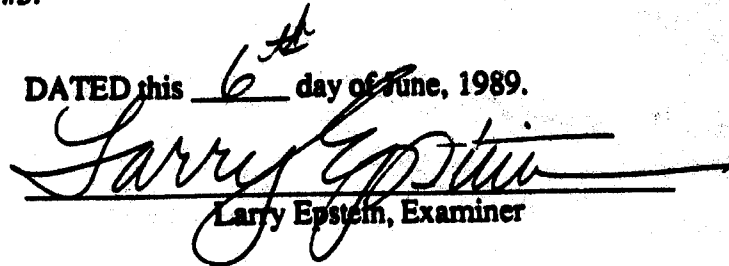 DATED this 6th day of June, 1989.
Larry Epstein
Larry Epstein, Examiner